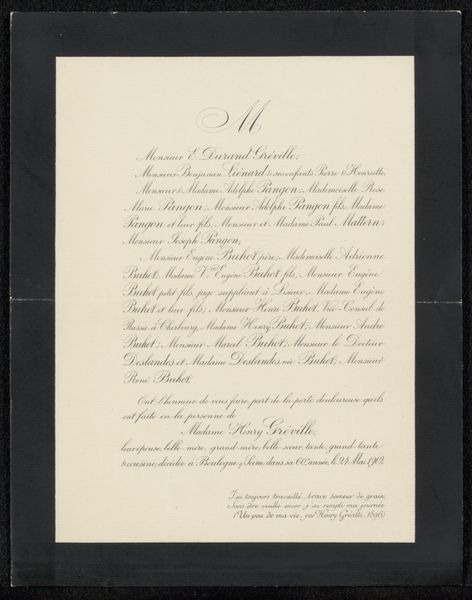 M
Monsieur E. Durand-Gréville;
Monsieur Benjamin Liénard & ses enfants Pierre & Henriette;
Monsieur & Madame Adolphe Pangon; Mademoiselle Rose
Marie Pangon; Monsieur Adolphe Pangon fils, Madame
Pangon et leur fils; Monsieur et Madame Paul Mattern;
Monsieur Joseph Pangon;
Monsieur Eugène Buhot père; Mademoiselle Adrienne
Buhot; Madame Vve Eugène Buhot fils; Monsieur Eugène
Buhot petit-fils, juge suppléant à Lisieux, Madame Eugène
Buhot et leur fils; Monsieur Henri Buhot, Vice-Consul de
Russie à Cherbourg, Madame Henry Buhot; Monsieur André
Buhot; Monsieur Marcel Buhot; Monsieur le Docteur
Deslandes et Madame Deslandes née Buhot; Monsieur
René Buhot,
Ont l'honneur de vous faire part de la perte douloureuse qu'ils
ont faite en la personne de
Madame Henry Gréville,
leur épouse, belle-mère, grand-mère, belle-sœur, tante, grand-tante
& cousine, décédée à Boulogne s/Seine, dans sa 60e année, le 24 Mai 1902.
J'ai toujours travaillé, brave semeur de grain;
Sans être vieille encor, j'ai rempli ma journée.
(Un peu de ma vie, par Henry Gréville, 1896)